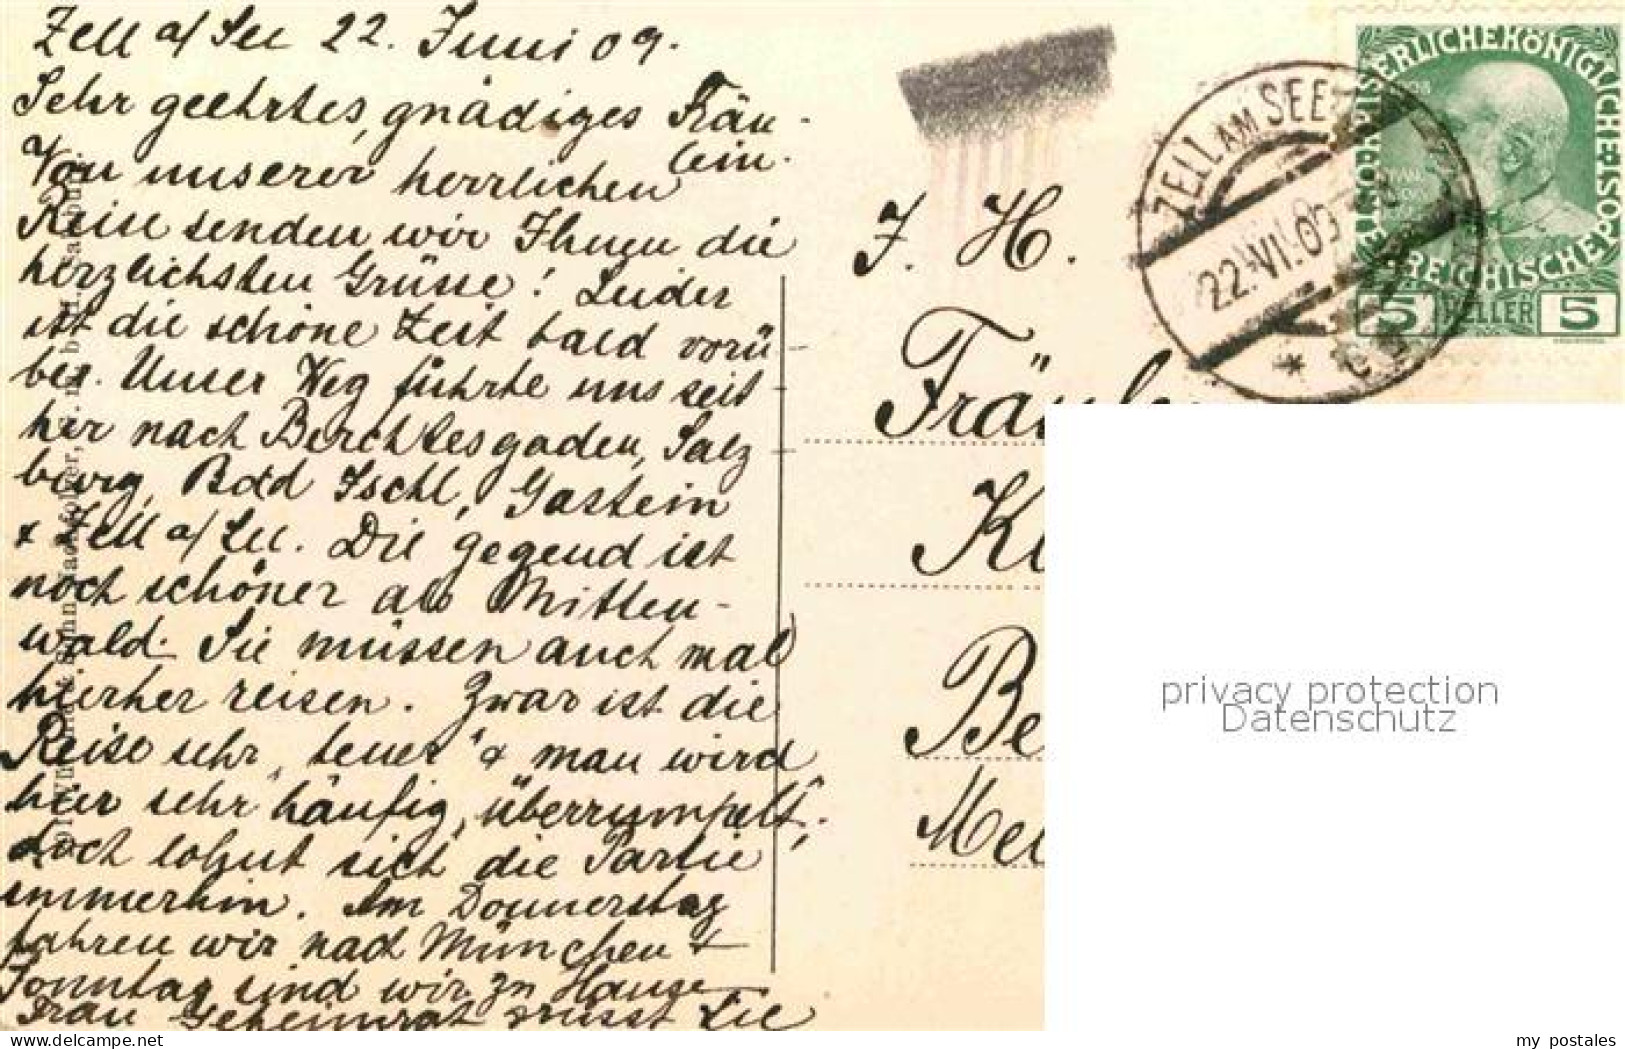 Zell a/ See 22. Juni 09.
Sehr geehrtes, gnädiges Fräu-
lein.
Von unserer herrlichen
Reise senden wir Ihnen die
herzlichsten Grüsse! Leider
ist die schöne Zeit bald vorü-
ber. Unser Weg führte uns seit-
her nach Berchtesgaden, Salz-
burg, Bad Ischl, Gastein
& Zell a/ See. Die Gegend ist
noch schöner als Mitten-
wald. Sie müssen auch mal
hierher reisen. Zwar ist die
Reise sehr „teuer" & man wird
hier sehr häufig „überrumpelt",
doch lohnt sich die Partie
immerhin. Am Donnerstag
fahren wir nach München &
Sonntag sind wir zu Hause
Frau Geheimrat grüsst Sie
J. H.
Fräule
Be
Me
ZELL AM SEE
22.VI.09
KAISERLICHE KÖNIGLICHE ÖSTERREICHISCHE POST
5 HELLER 5
privacy protection
Datenschutz
my postales